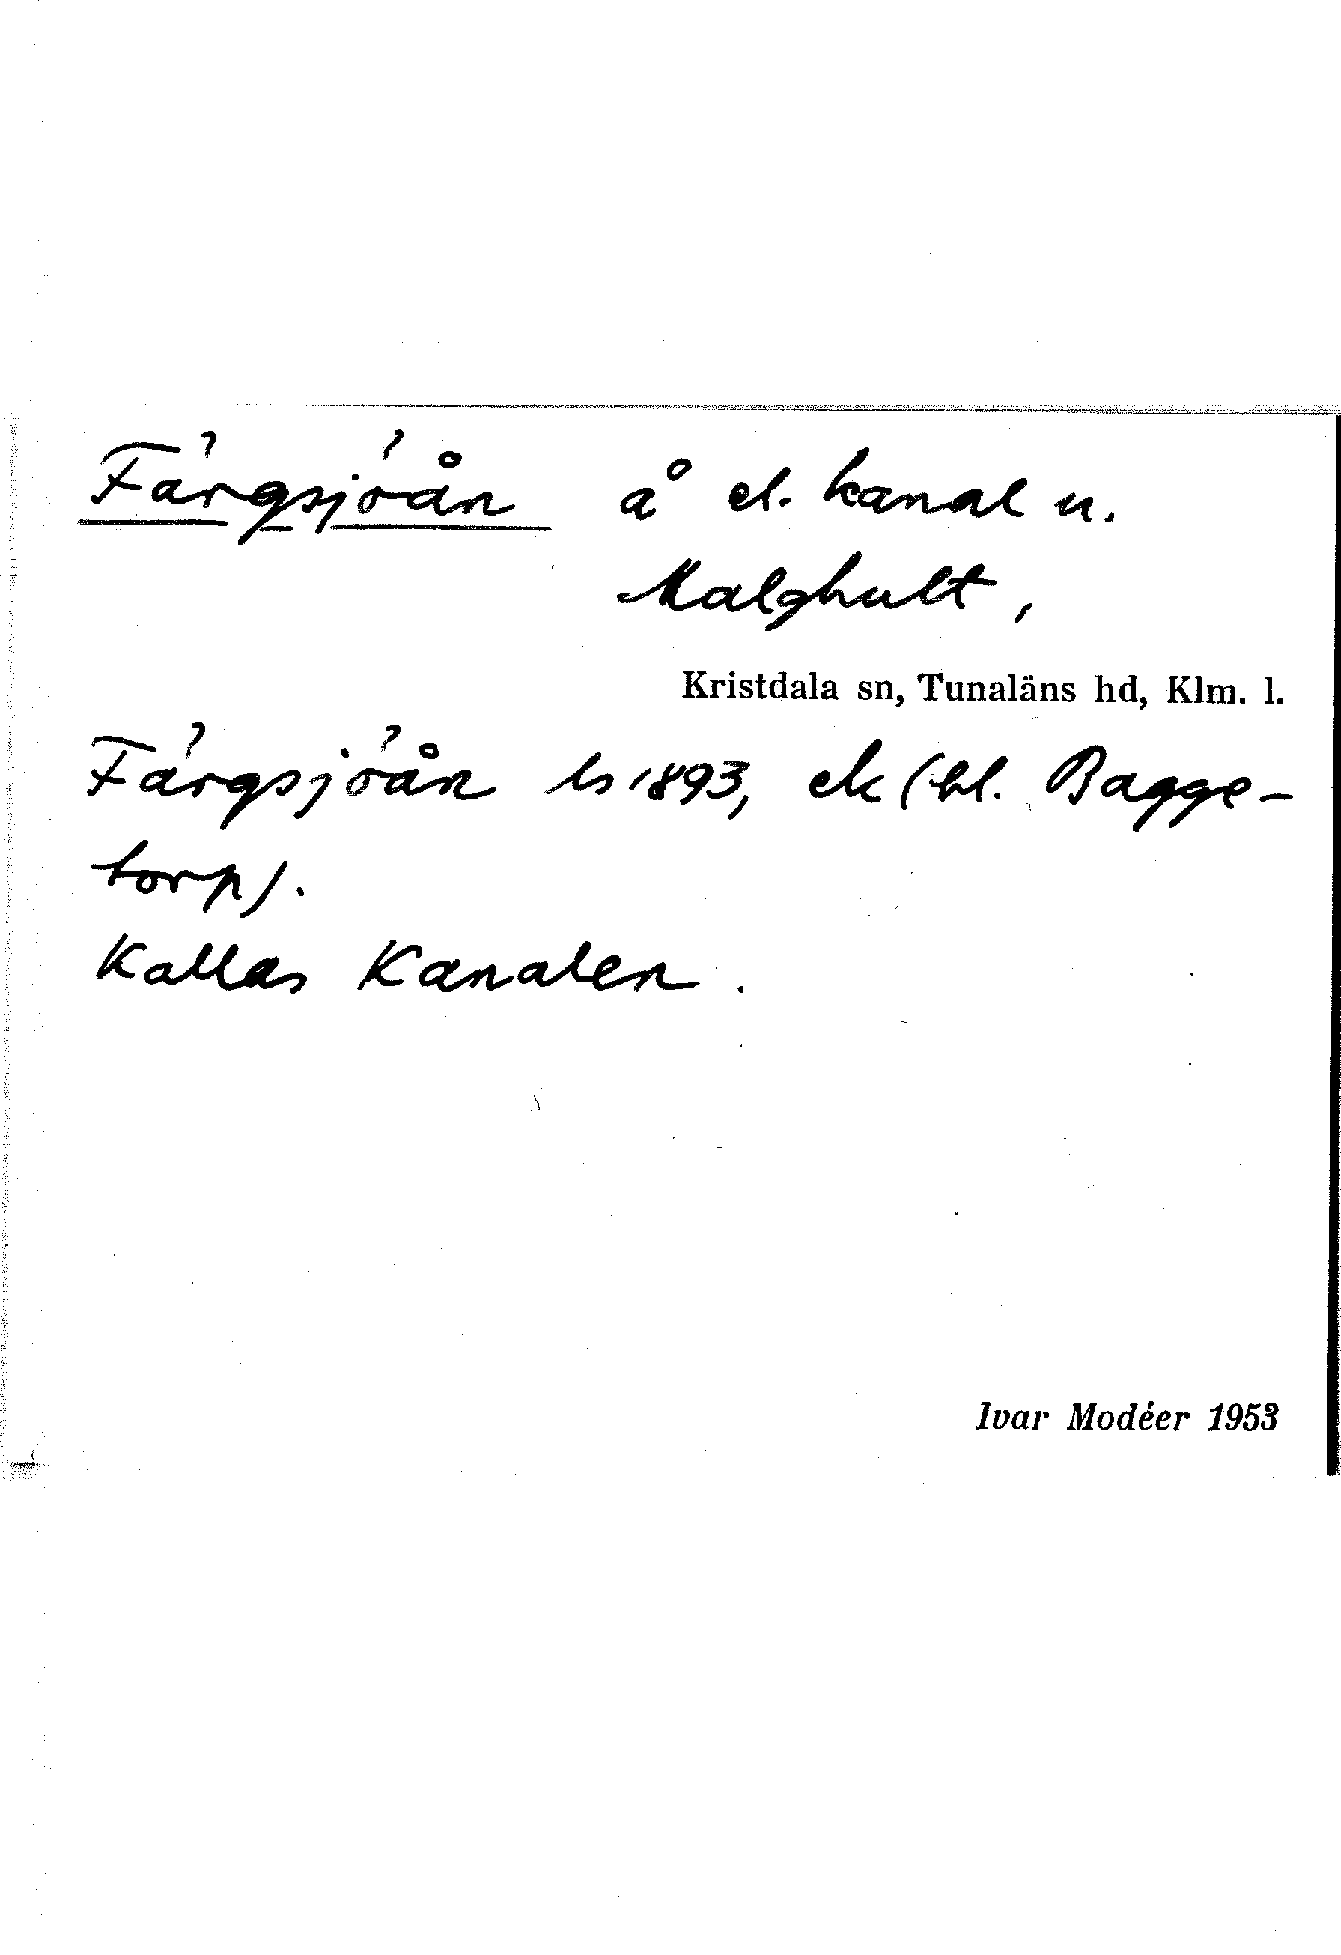 Färgsjöån å el. kanal u.
Malghult,
Kristdala sn, Tunaläns hd, Klm. l.
Färgsjöån ls 1893, ek (bl. Bagge-
torp).
Kallas Kanalen.
Ivar Modéer 1953